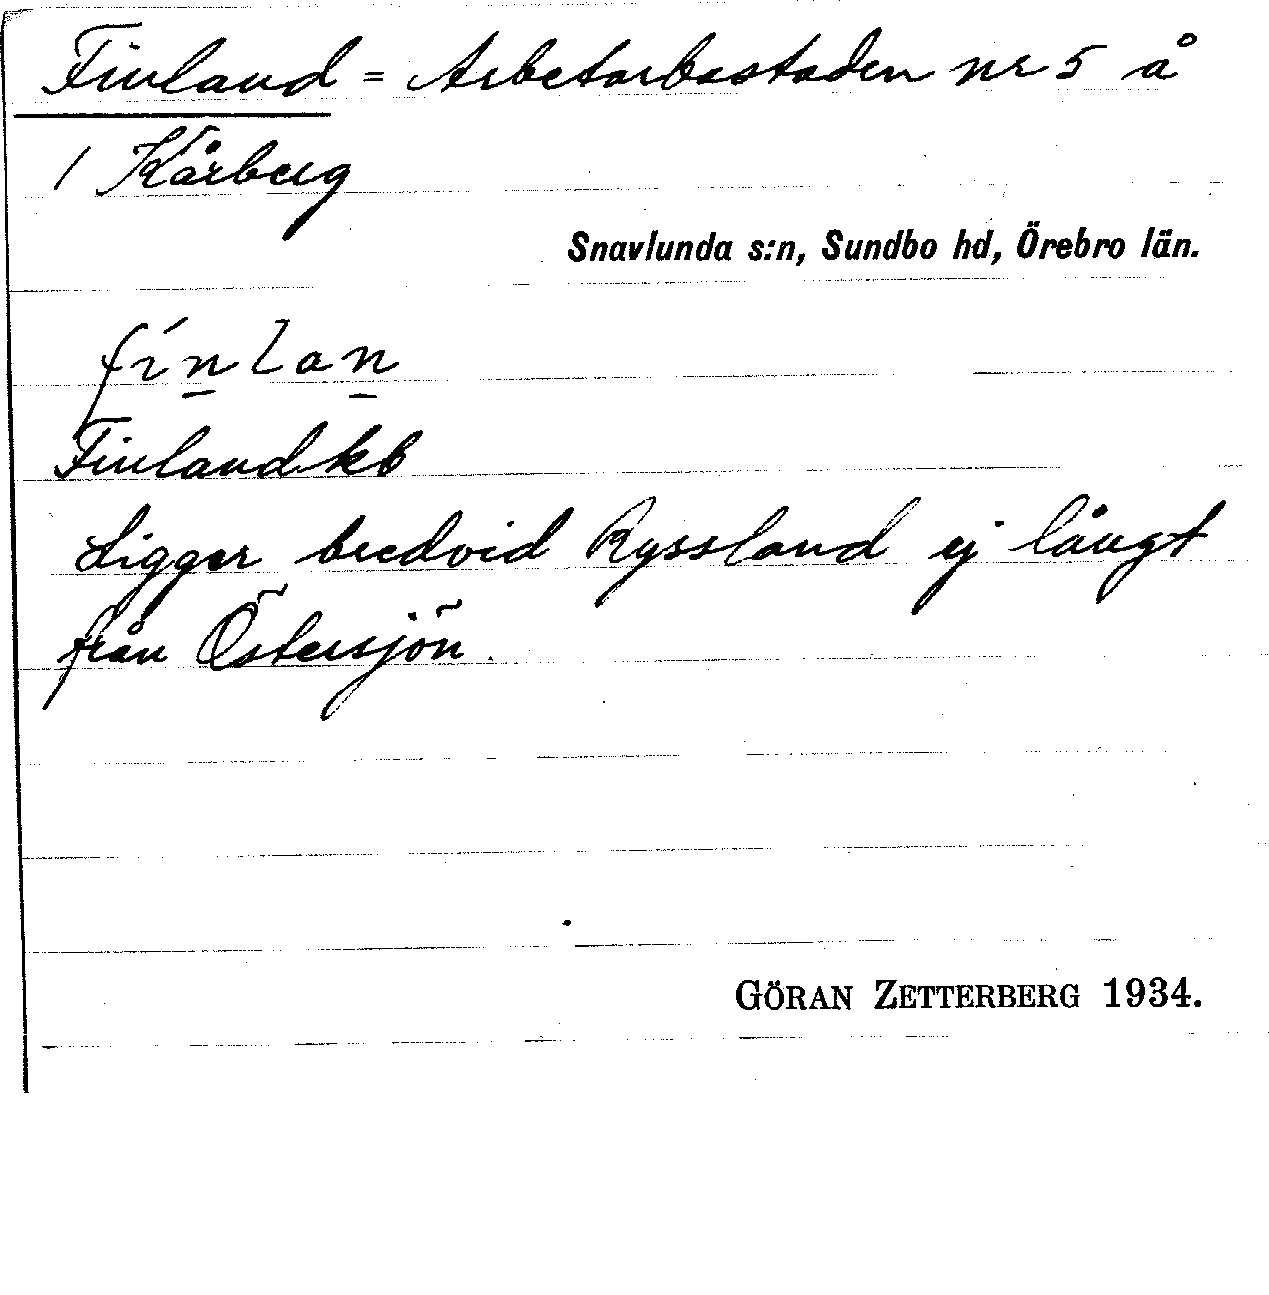 Finland = Arbetarbostaden nr 5 å
/ Kårberg
Snavlunda s:n, Sundbo hd, Örebro län.
fínlan
Finland kb
Ligger bredvid Ryssland ej långt
från Östersjön.
GÖRAN ZETTERBERG 1934.